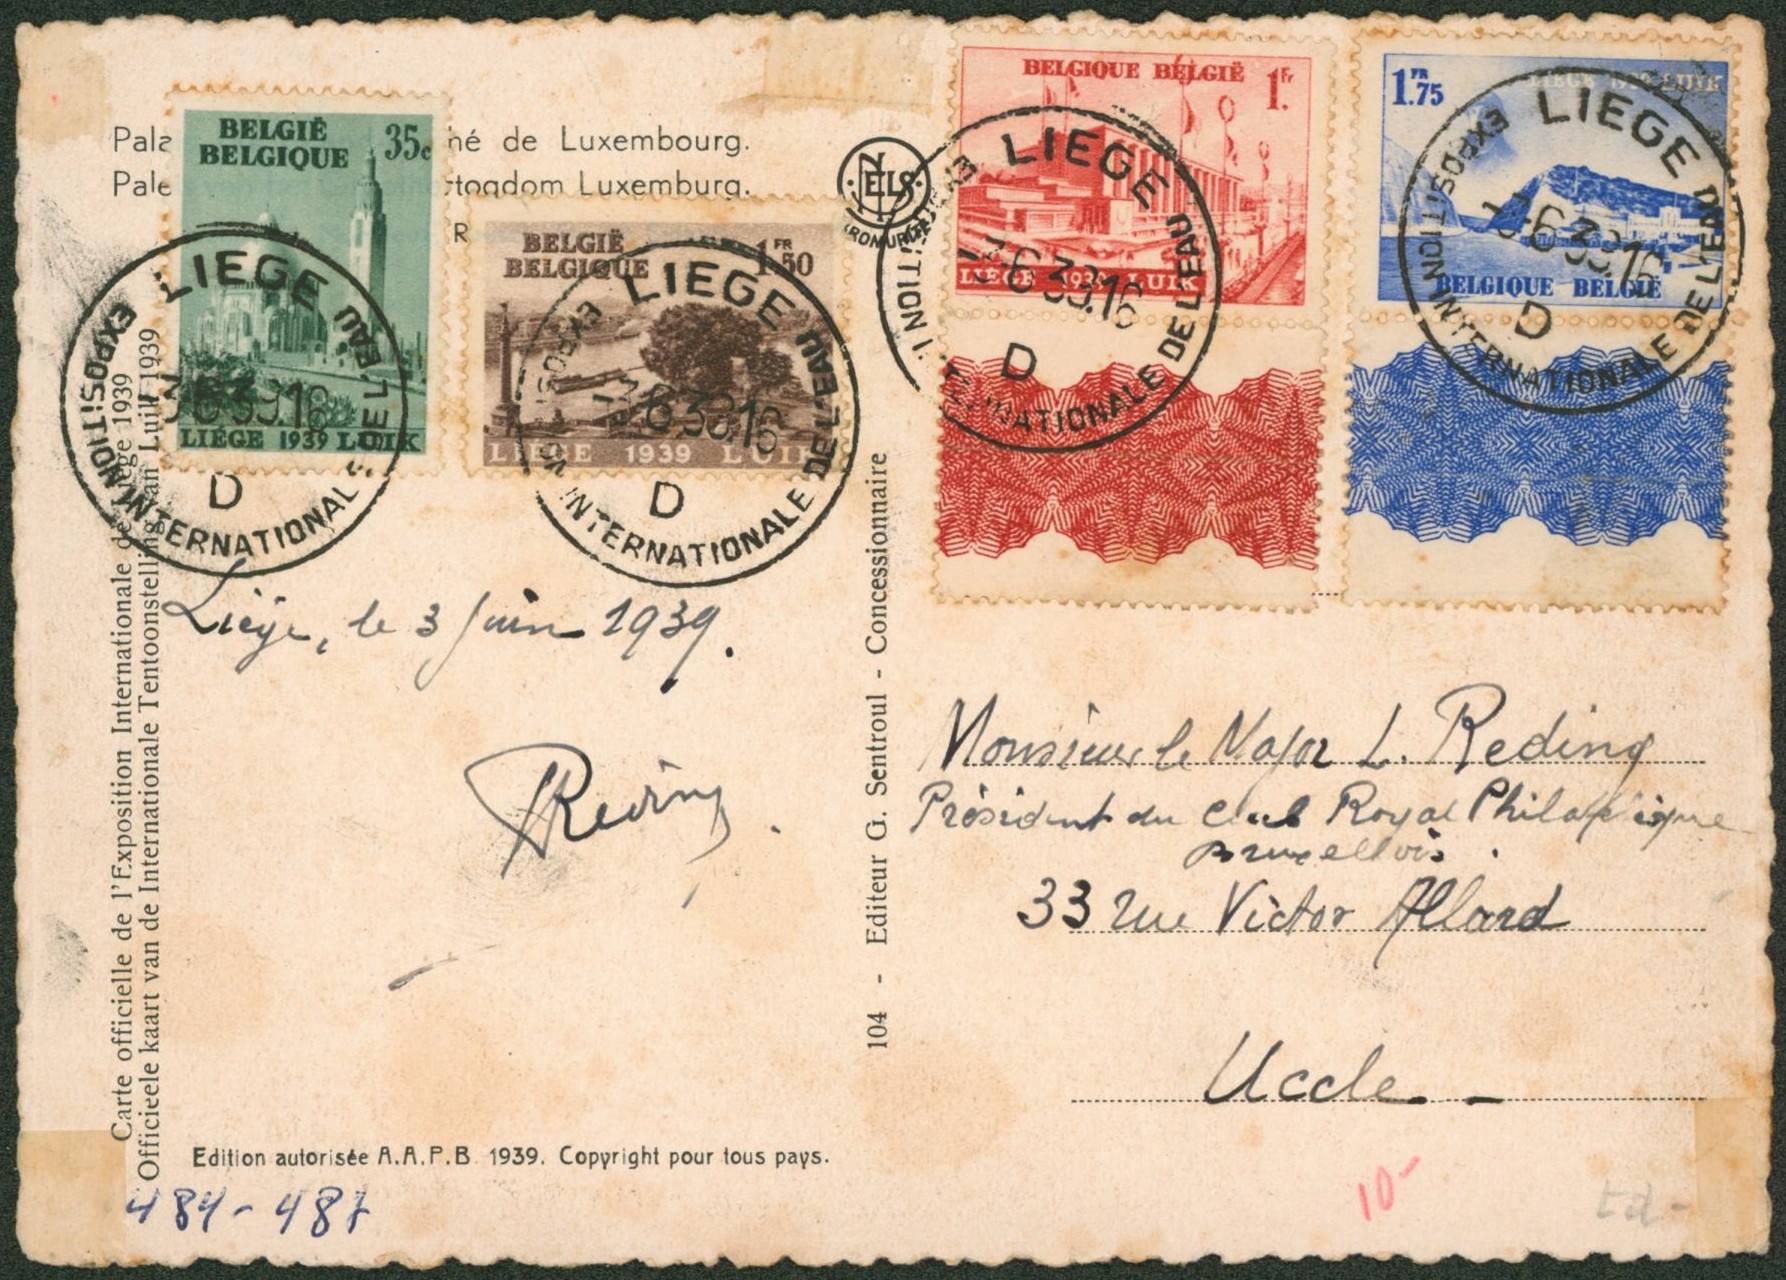 Pala hé de Luxembourg.
Pale rtogdom Luxemburg.
R
NELS
BELGIË
BELGIQUE 35c
LIÉGE 1939 LUIK
BELGIË
BELGIQUE
1FR50
LIÉGE 1939 LUIK
BELGIQUE BELGIË 1Fr.
LIÉGE 1939 LUIK
1FR.75
LIÉGE 1939 LUIK
BELGIQUE BELGIË
LIEGE
EXPOSITION INTERNATIONALE DE L'EAU
3-6 39.16
D
LIEGE
EXPOSITION INTERNATIONALE DE L'EAU
3-6 39.16
D
LIEGE
EXPOSITION INTERNATIONALE DE L'EAU
3-6 39.16
D
LIEGE
EXPOSITION INTERNATIONALE DE L'EAU
3-6 39.16
D
Carte officielle de l'Exposition Internationale de Liége 1939
Officieele kaart van de Internationale Tentoonstelling van Luik 1939
Liége, le 3 Juin 1939.
Reding.
104 - Editeur G. Sentroul - Concessionnaire
Monsieur le Major L. Reding
Président du Club Royal Philatélique
Bruxellois.
33 rue Victor Allard
Uccle
Edition autorisée A.A.P.B. 1939. Copyright pour tous pays.
484-487
10-